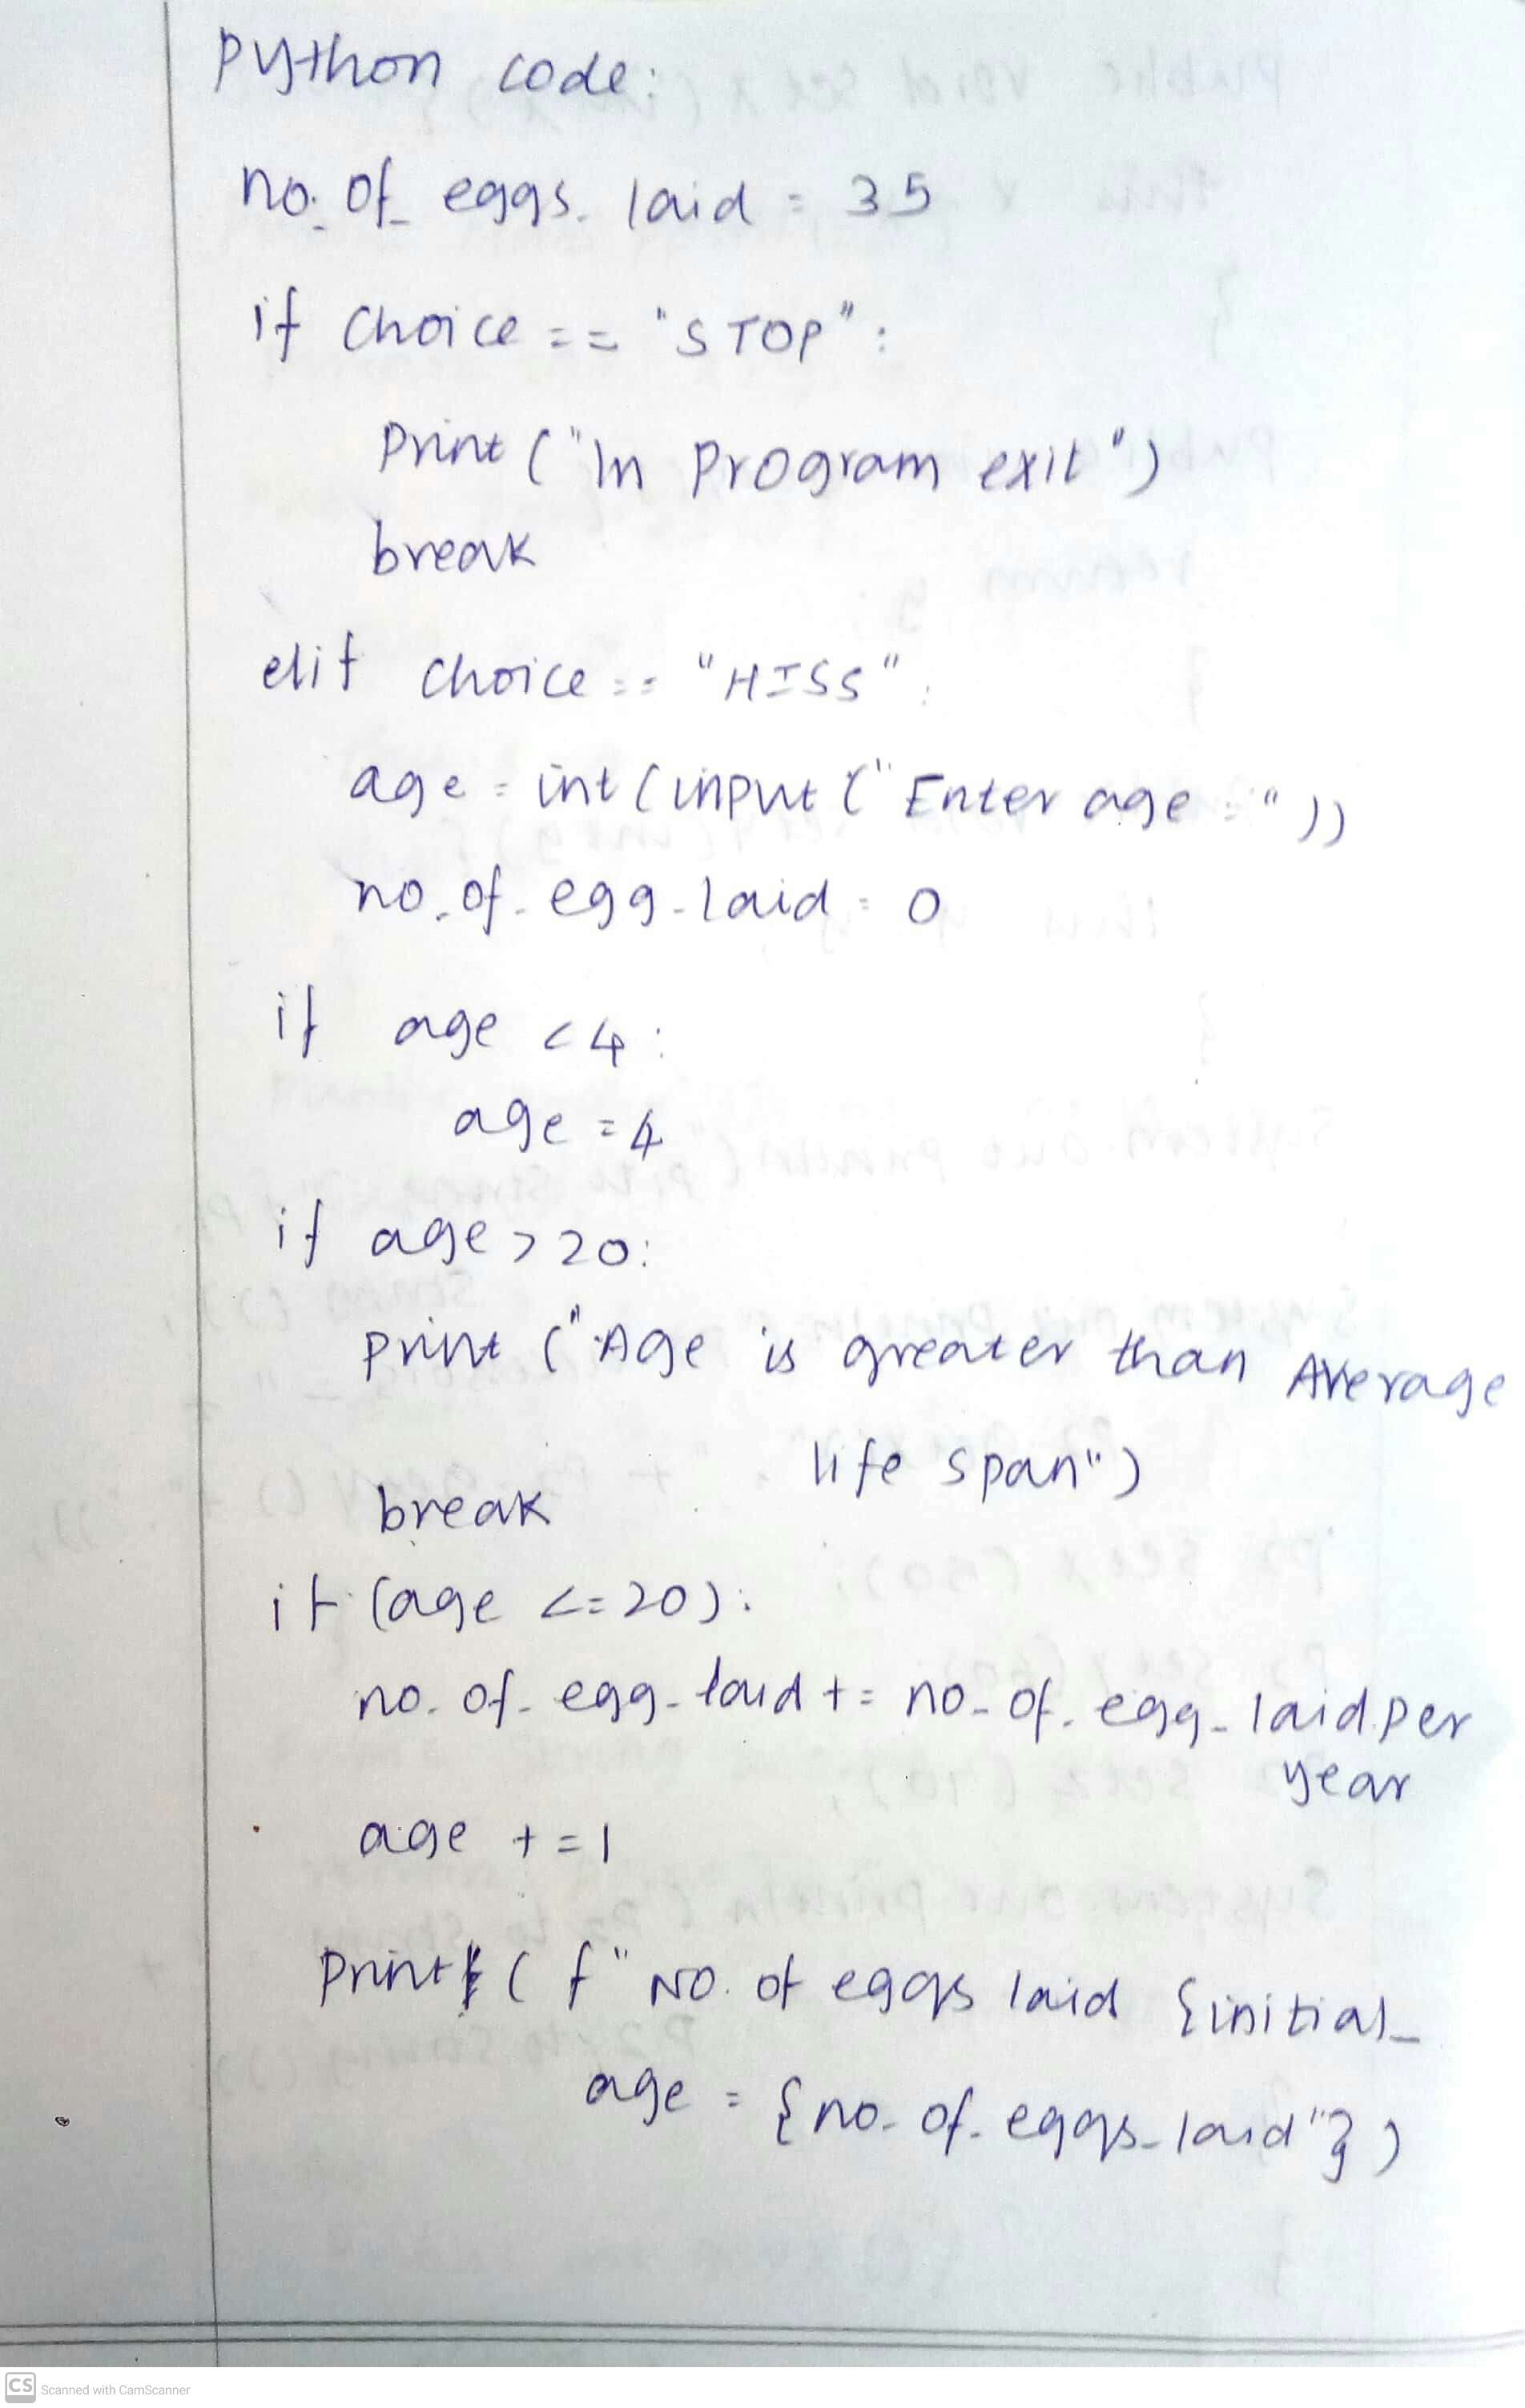 Python code:
no. of_ eggs_ laid = 35
if choice == "STOP":
Print ("In Program exit")
break
elif choice == "HISS":
age = int (input ("Enter age : "))
no_of_egg_laid = 0
if age <4:
age = 4
if age >20:
print ("Age is greater than Average
life span")
break
if (age <=20):
no_of_egg_laid += no_of_egg_laid per
year
age +=1
Print (f"NO. of eggs laid {initial_
age = {no_of_eggs_laid"})
CS Scanned with CamScanner